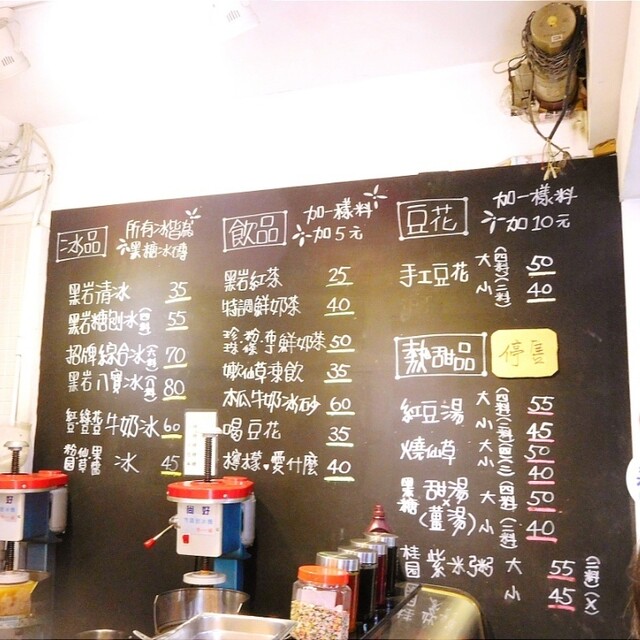 冰品
所有冰皆為
黑糖冰磚
黑岩清冰 35
黑岩糖剉冰(四料) 55
招牌綜合冰(六料) 70
黑岩八寶冰(八料) 80
紅豆 綠豆 花豆 牛奶冰 60
粉圓 仙草 冰 45
飲品
加一樣料
加5元
黑岩紅茶 25
特調鮮奶茶 40
鮮奶茶 50
嫩仙草凍飲 35
木瓜牛奶冰砂 60
喝豆花 35
檸檬•愛什麼 40
豆花
加一樣料
加10元
手工豆花 大(四料) 50
小(二料) 40
熱甜品
停售
紅豆湯 大(四料) 55
小(二料) 45
燒仙草 大(四料) 50
小(二料) 40
黑糖甜湯 大(四料) 50
(薑湯) 小(二料) 40
桂圓紫米粥 大 55 (二料)
小 45 (X)
固好